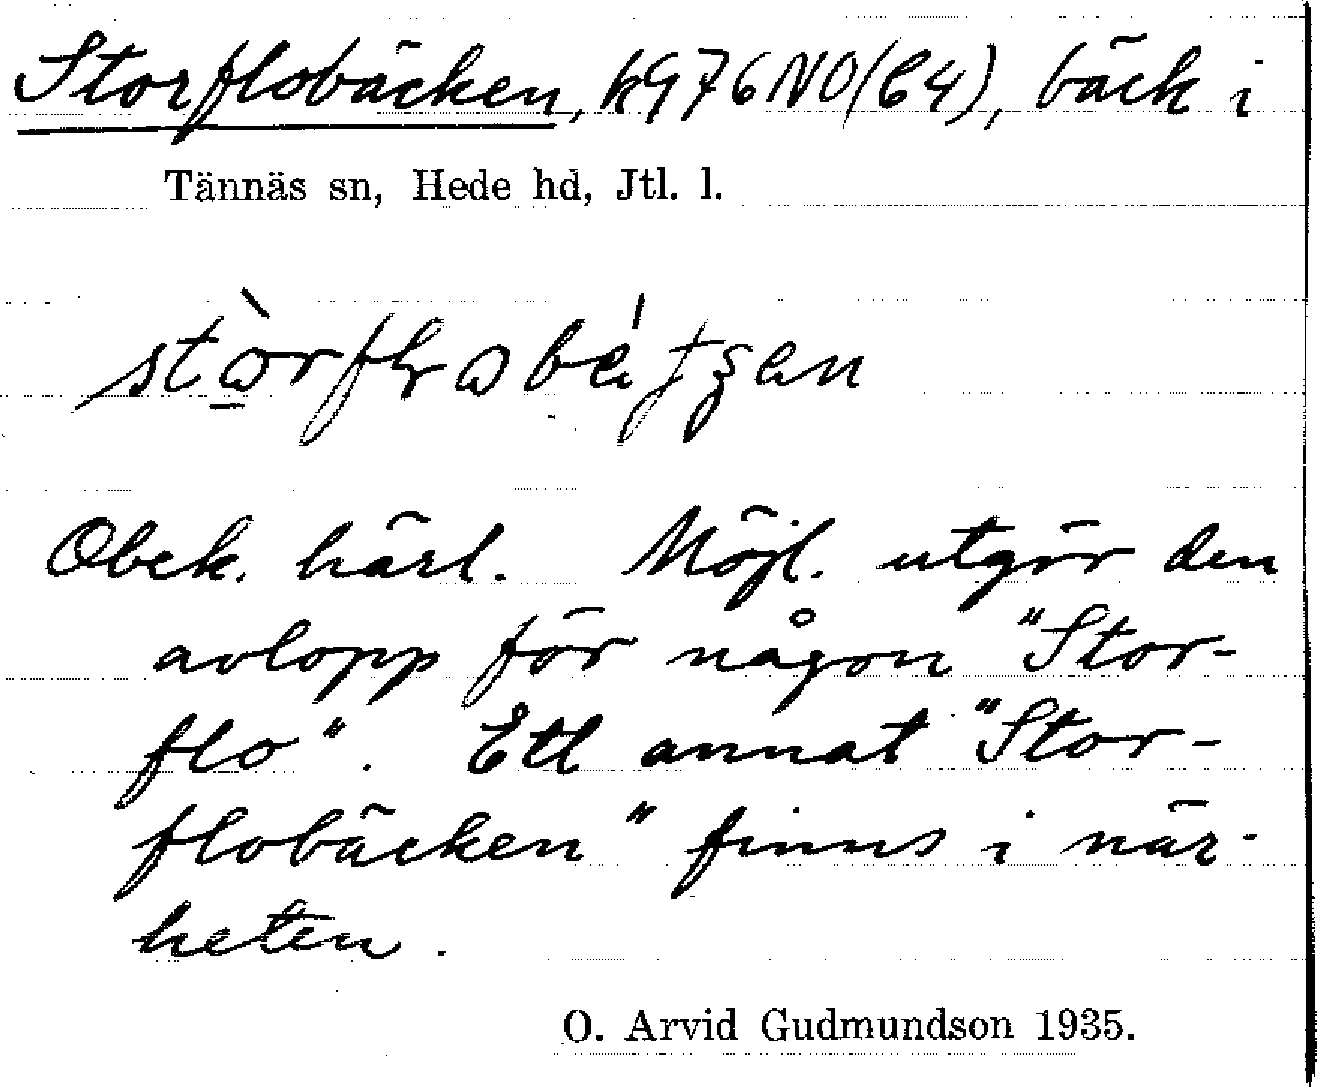 Storflobäcken, k976NO(C4), bäck i
Tännäs sn, Hede hd, Jtl. l.
Obek. härl. Möjl. utgör den
avlopp för någon "Stor-
flo". Ett annat "Stor-
flobäcken" finns i när-
heten.
O. Arvid Gudmundson 1935.